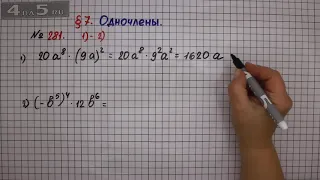 4 DA 5 RU.
§ 7. Одночлены.
№ 281. 1)-2)
1) 20a⁸ · (9a)² = 20a⁸ · 9²a² = 1620a
2) (-b⁵)⁴ · 12b⁶ =